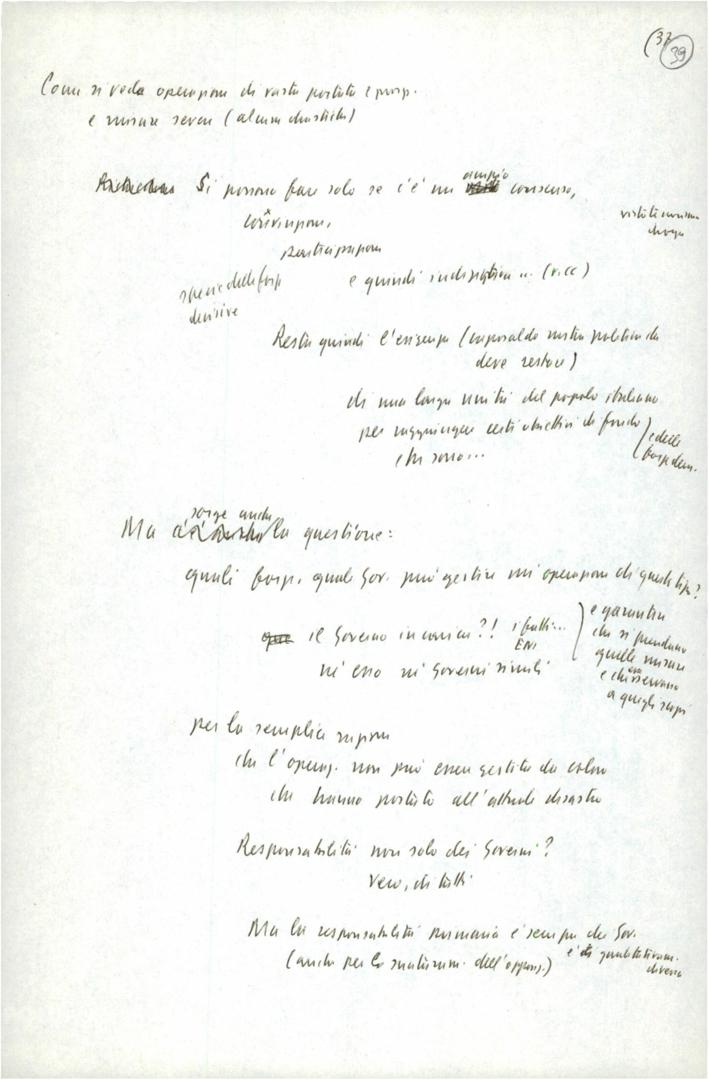 (37
39
Come si veda operazioni di vasta portata e prosp.
e misure severe (alcune drastiche)
Si possono fare solo se c'è un ampio consenso,
convinzioni,
partecipazioni
e quindi indispensabili … (ricc)
specie delle forze
decisive
Resta quindi l'esigenza (caposaldo nostra politica da
deve restare)
di una larga unità del popolo italiano
per raggiungere certi obiettivi di fondo
che sono…
e delle
forze dem.
sorge anche
Ma la questione:
quali forze, quale Gov. può gestire un'operazione di questi tipi?
il Governo in carica?! i fatti…
ENI
né esso né Governi simili
e garantire
che si prendano
quelle misure
e che servano
a quegli scopi
per la semplice ragione
che l'operaz. non può essere gestita da coloro
che hanno portato all'attuale disastro
Responsabilità non solo dei Governi?
Vero, di tutti
Ma la responsabilità primaria è sempre dei Gov.
(anche per lo snaturam. dell'opposiz.)
è qualitativam.
diversa